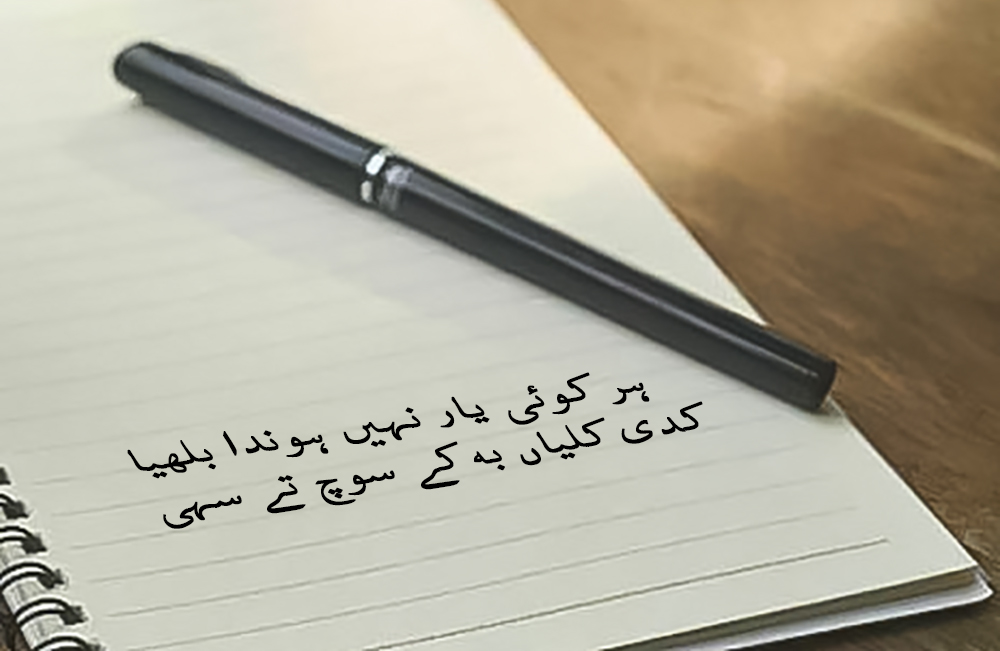 ہر کوئی یار نہیں ہوندا بلھیا
کدی کلیاں بہ کے سوچ تے سہی